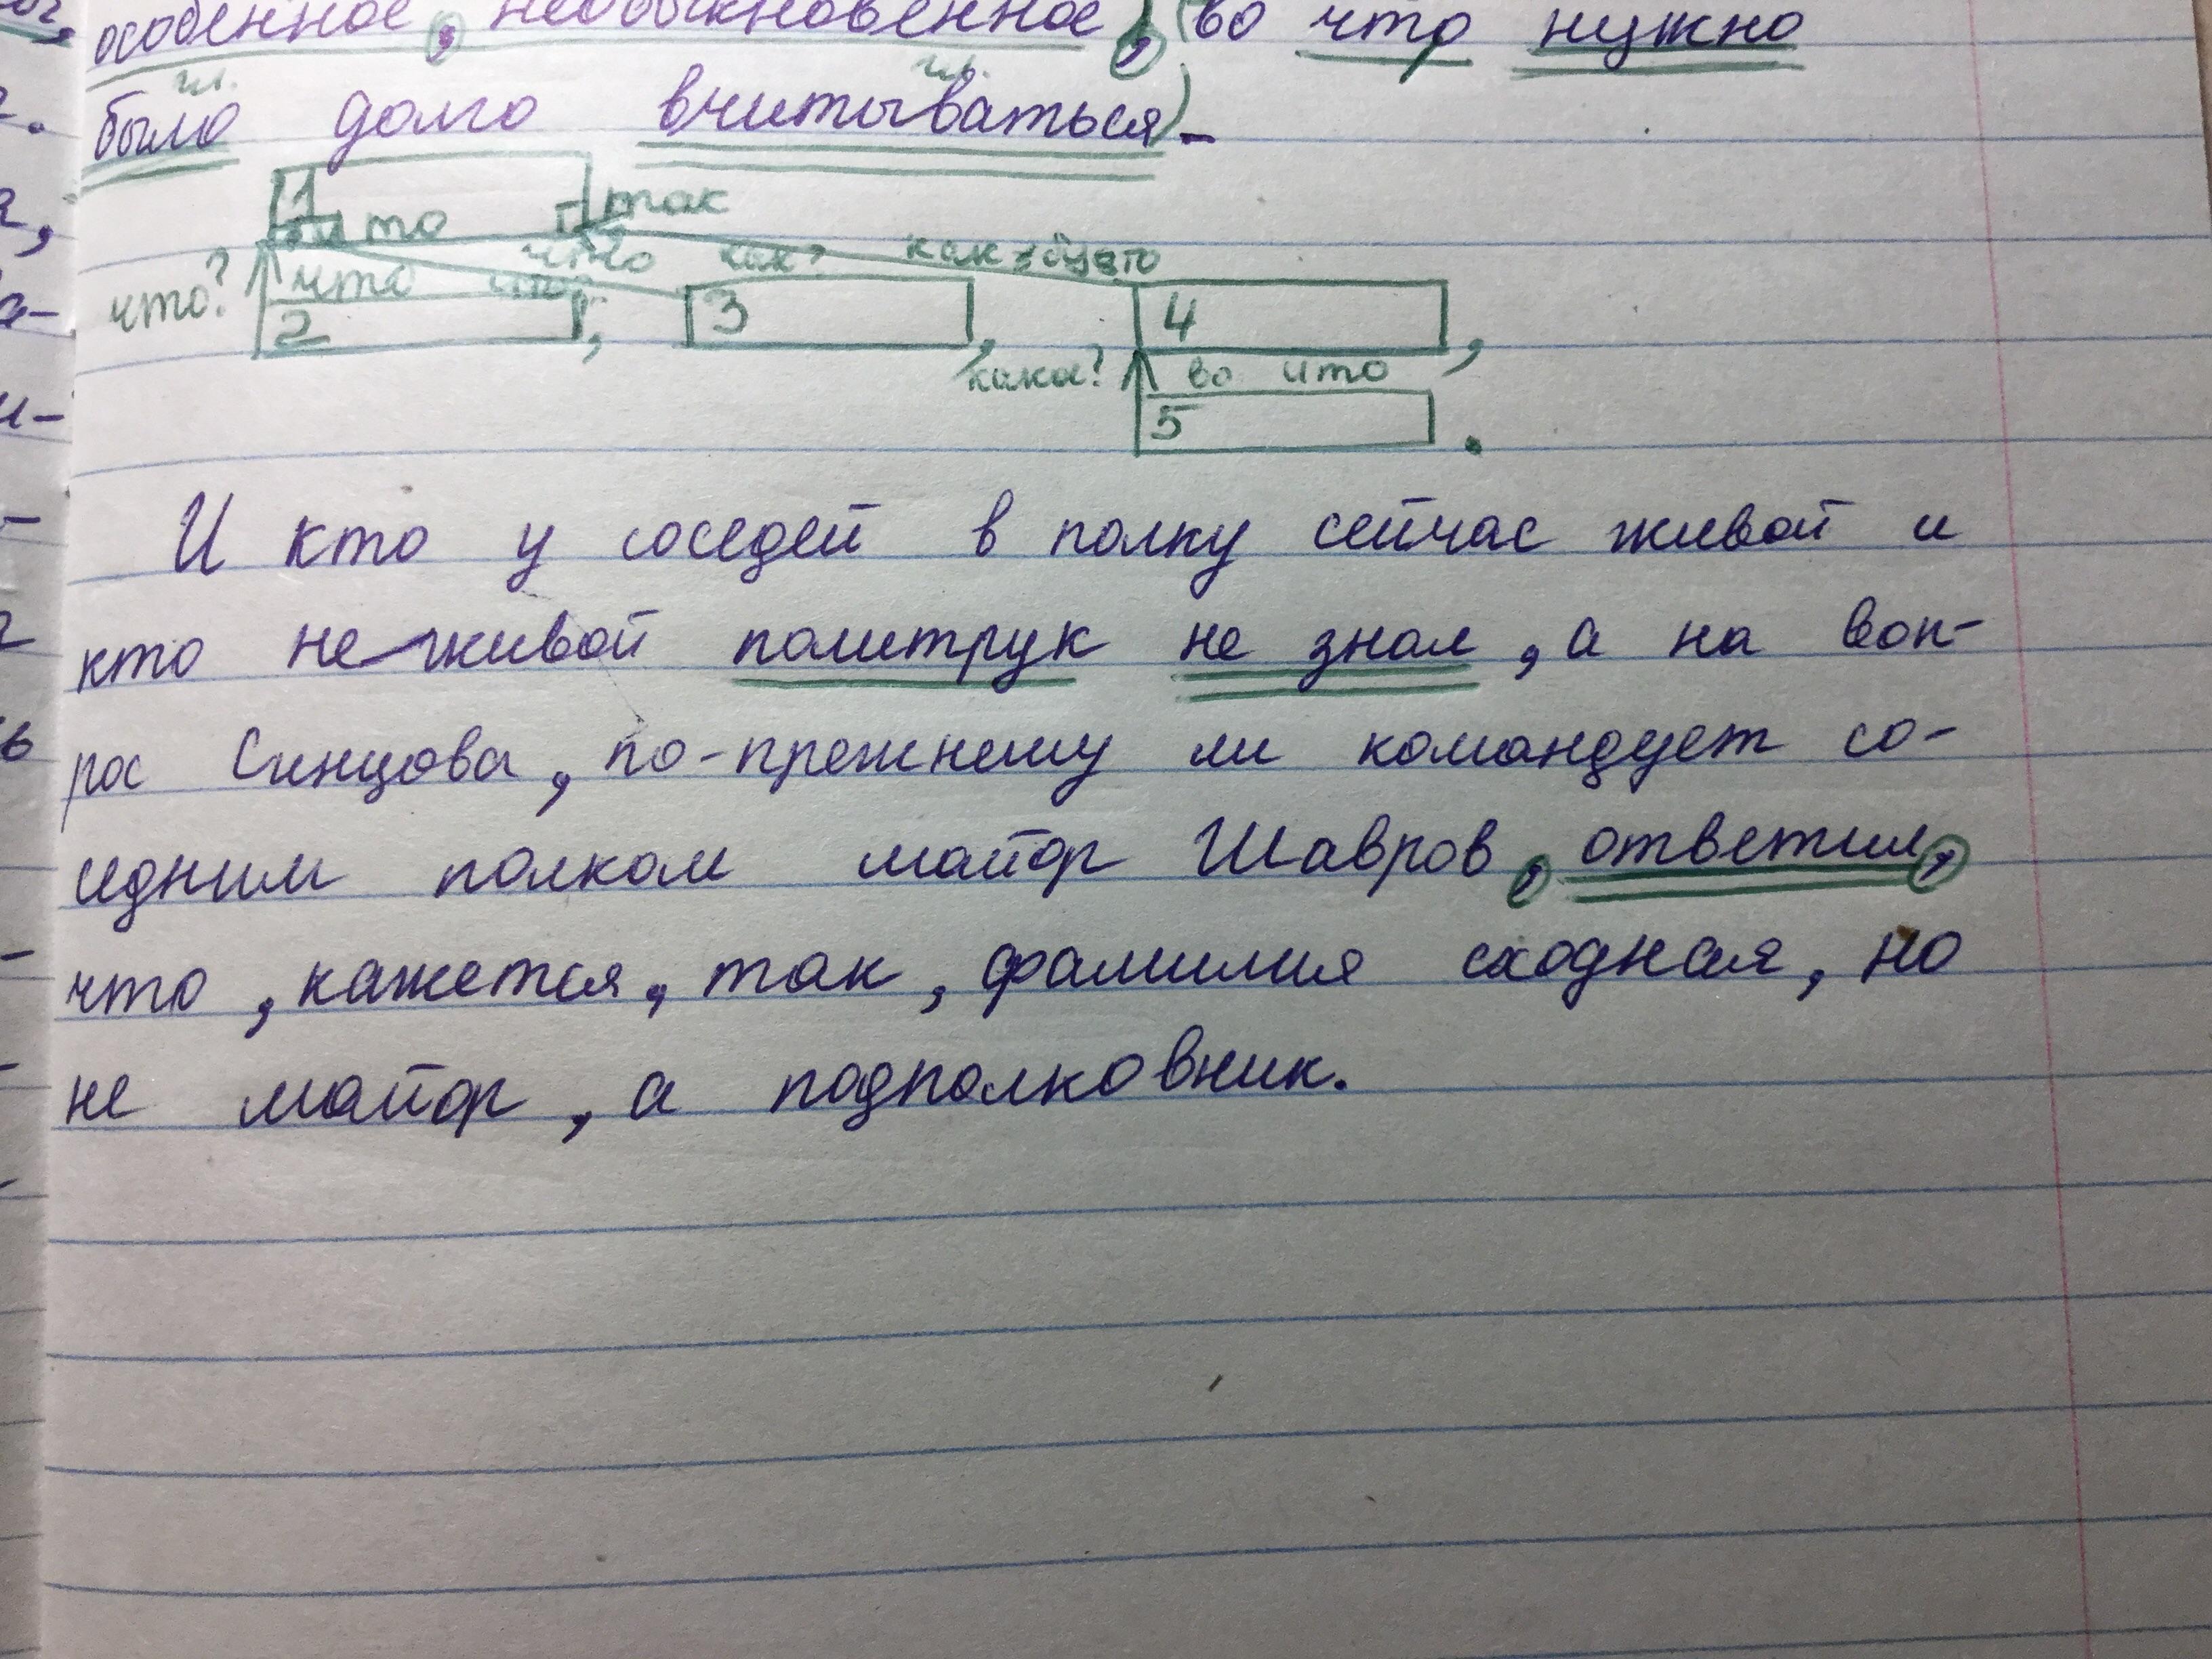 особенное, необыкновенное, (во что нужно
гл. гл.
было долго вчитываться).
1 то так
что как? как будто
что? что
2 , 3 , 4 ,
какое? во что
5 .
И кто у соседей в полку сейчас живой и
кто неживой политрук не знал, а на воп-
рос Синцова, по-прежнему ли командует со-
седним полком майор Шавров, ответил,
что, кажется, так, фамилия сходная, но
не майор, а подполковник.